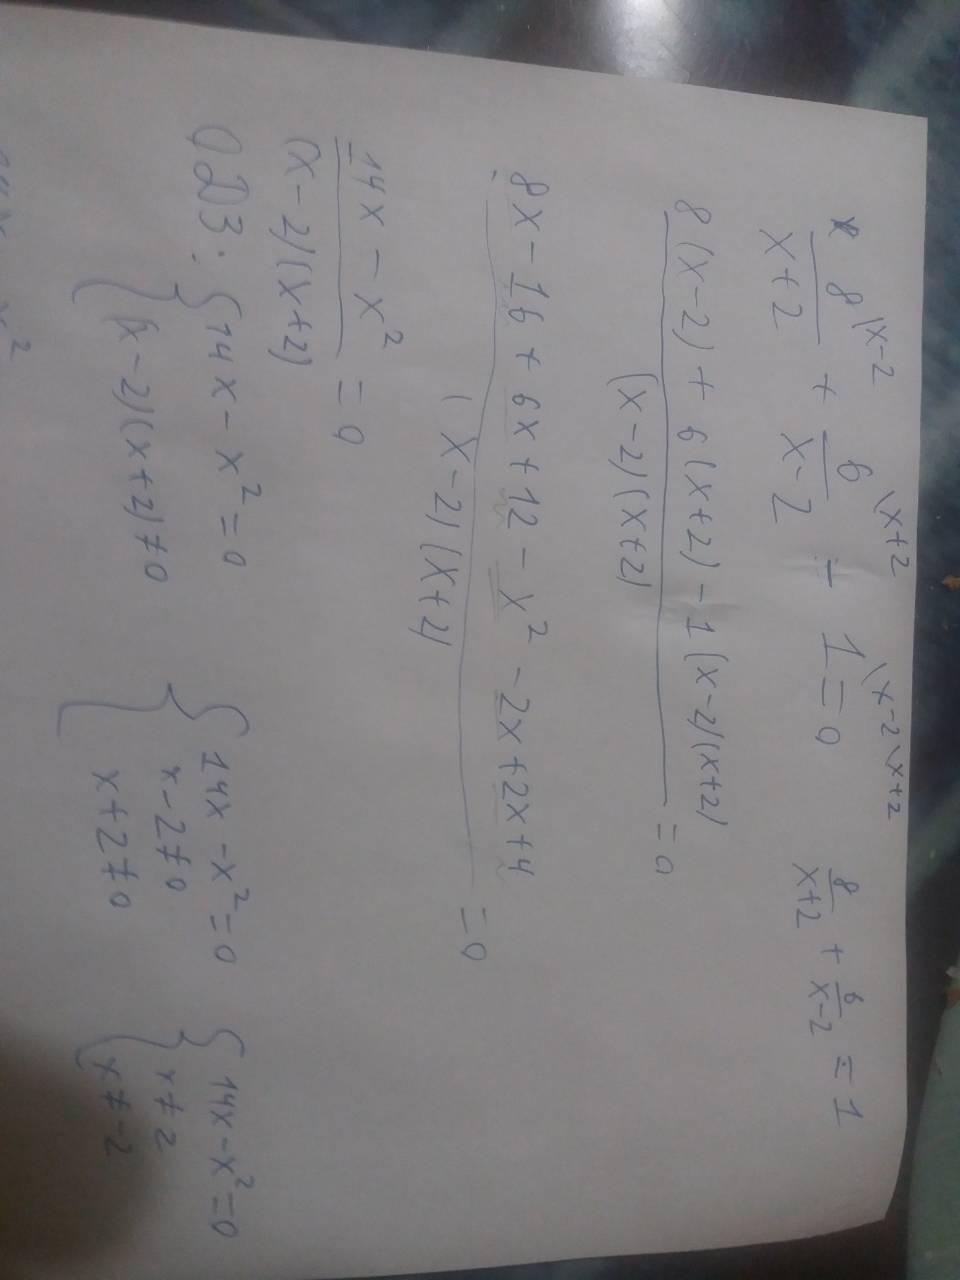 8\x-2 / x+2 + 6\x+2 / x-2 - 1\x-2\x+2 = 0     8/x+2 + 6/x-2 = 1
8(x-2) + 6(x+2) - 1(x-2)(x+2) / (x-2)(x+2) = 0
8x - 16 + 6x + 12 - x² - 2x + 2x + 4 / (x-2)(x+2) = 0
14x - x² / (x-2)(x+2) = 0
ОДЗ: { 14x - x² = 0     { 14x - x² = 0     { 14x - x² = 0
(x-2)(x+2) ≠ 0     x-2 ≠ 0     x ≠ 2
x+2 ≠ 0     x ≠ -2